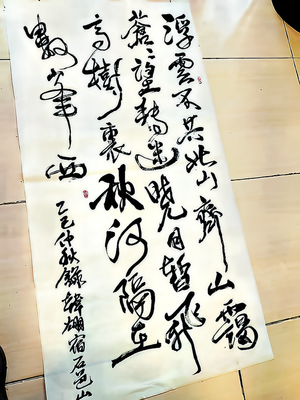 浮雲不共此山齊山靄
蒼〻望轉迷曉月暫飛
高樹裏秋河隔在
數峯西
乙巳仲秋錄韓翃宿石邑山